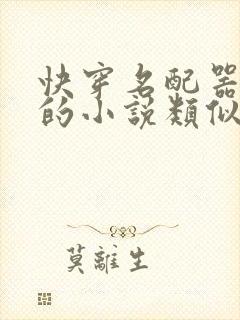 快穿名配器
的小說類似
莫離生